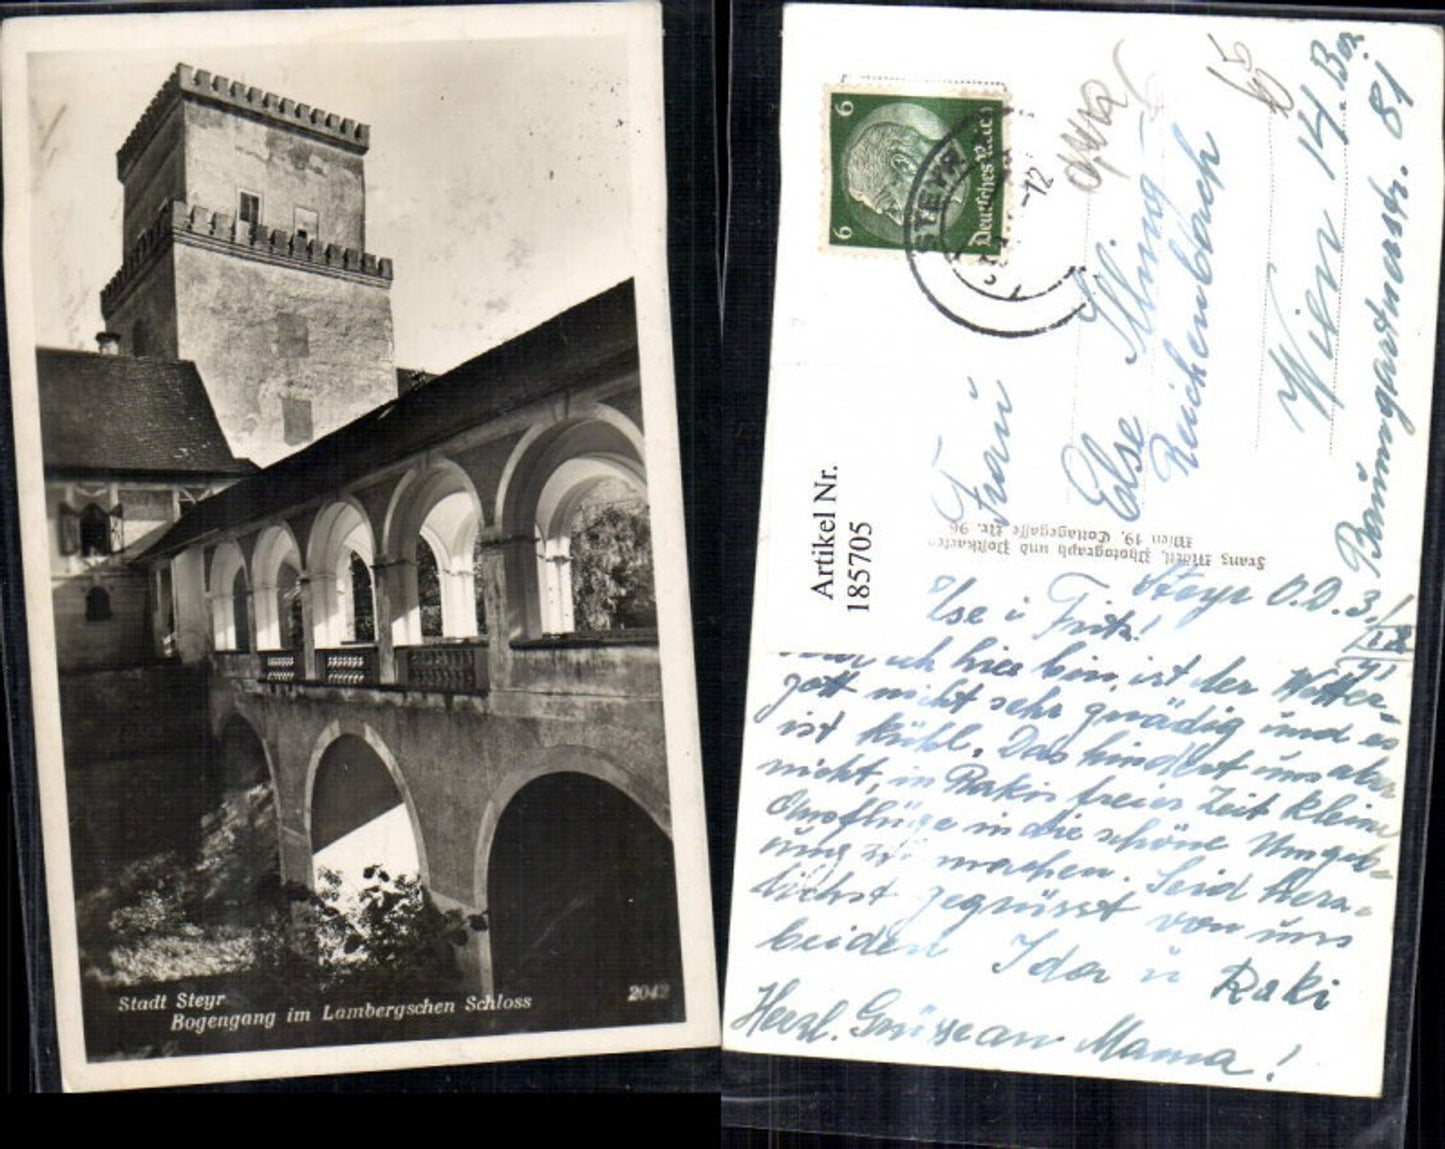 Stadt Steyr
Bogengang im Lambergschen Schloss
2042
6 6
Deutsches Reich
STEYR
-12
Artikel Nr.
185705
Frau
Else Illing
Reichenbach
Wien 14. Bez.
Baumgartnerstr. 81
65
Franz Mördl, Photograph und Postkarten
Wien 19, Cottagegasse Nr. 96
Steyr O.D. 3./IX
41
Ilse u Fritz!
ich hier bin, ist der Wetter-
gott nicht sehr gnädig und es
ist kühl. Das hindert uns aber
nicht, in Rakis freier Zeit kleine
Ausflüge in die schöne Umgeb-
ung zu machen. Seid herz-
lichst gegrüsst von uns
beiden Ida u Raki
Herzl. Grüsse an Mama!